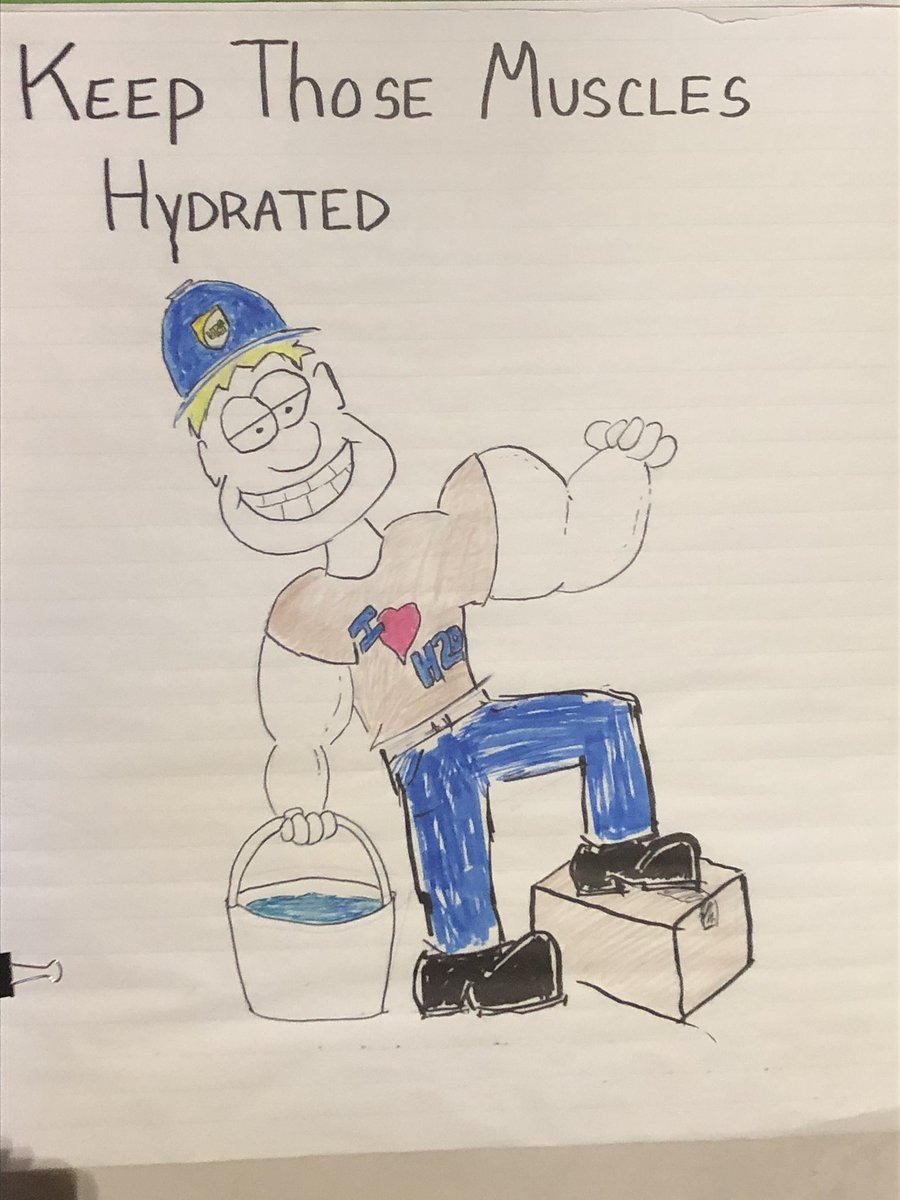 KEEP THOSE MUSCLES
HYDRATED
I
H2O